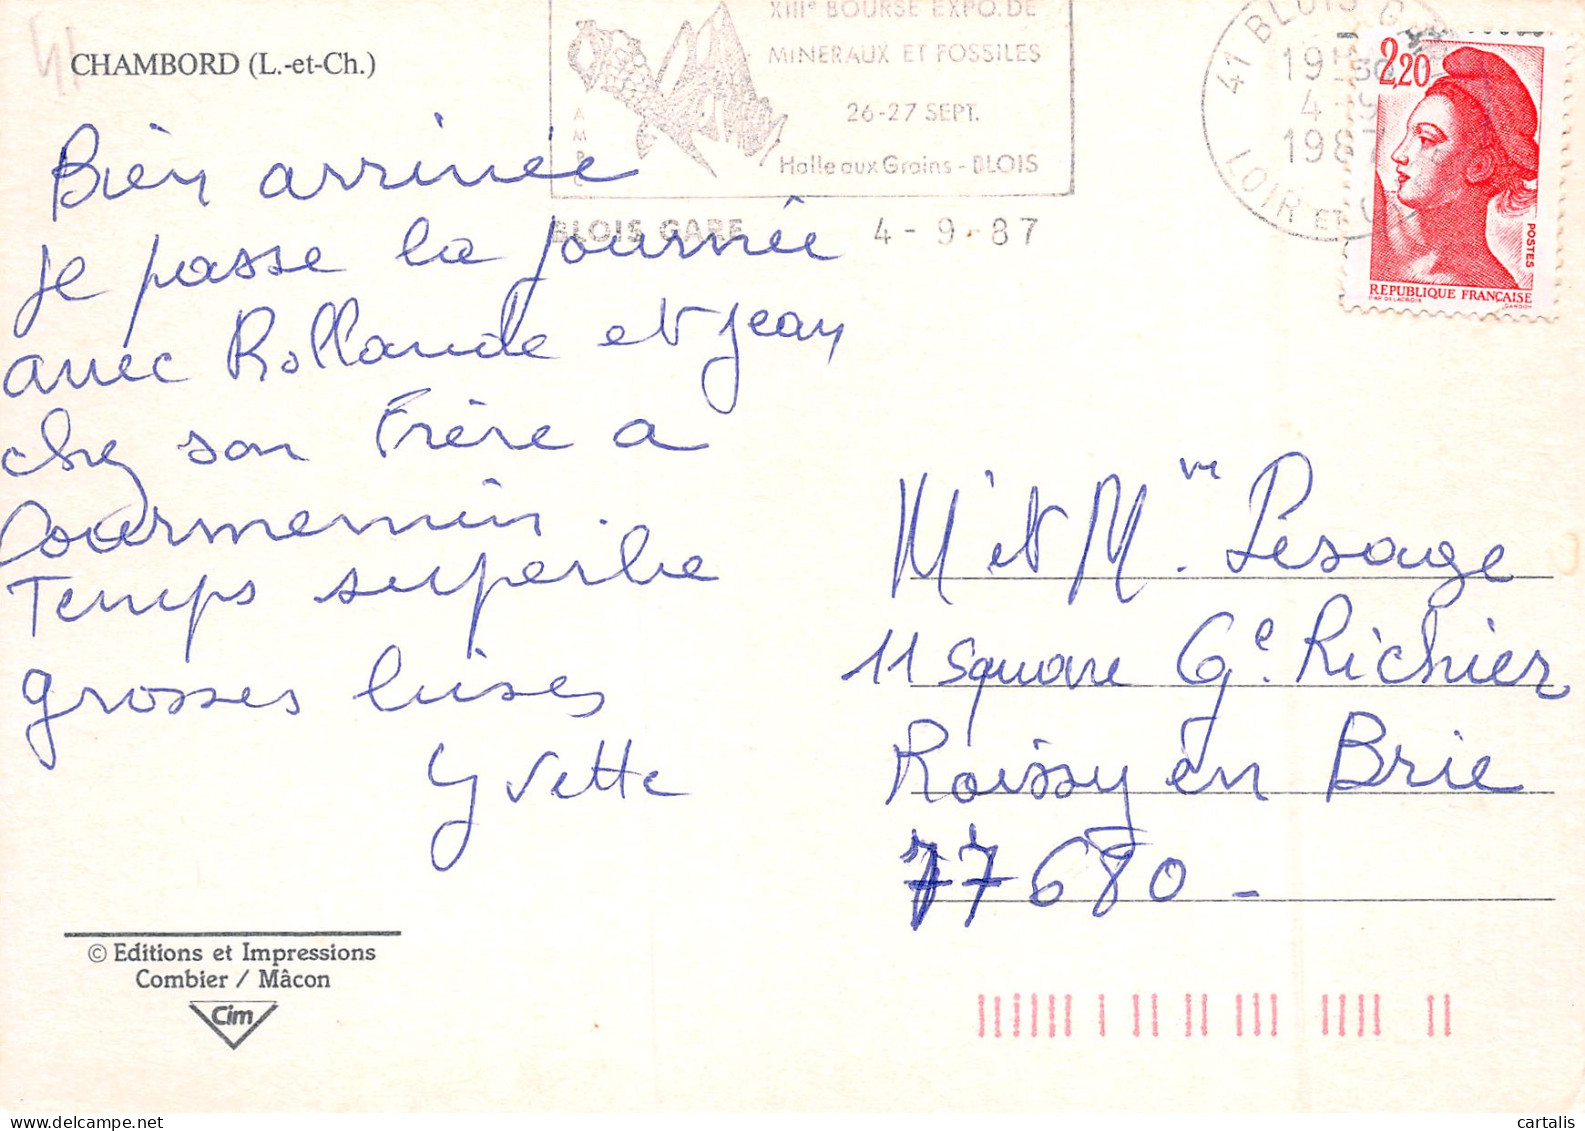 CHAMBORD (L.-et-Ch.)
XIIIᵉ BOURSE EXPO. DE
MINERAUX ET FOSSILES
26-27 SEPT.
Halle aux Grains - BLOIS
BLOIS GARE 4 - 9 - 87
41 BLOIS GARE
4 - 9
1987
LOIR ET CHER
2,20
POSTES
REPUBLIQUE FRANÇAISE
D'AP. DELACROIX GANDON
Bien arrivée
je passe la journée
avec Rollande et Jean
chez son Frère a
Courmemin.
Temps superbe
grosses bises
Yvette
Mʳ et Mᵐᵉ. Lesage
11 square Gᵉ. Richier
Roissy en Brie
77680 -
© Editions et Impressions
Combier / Mâcon
Cim